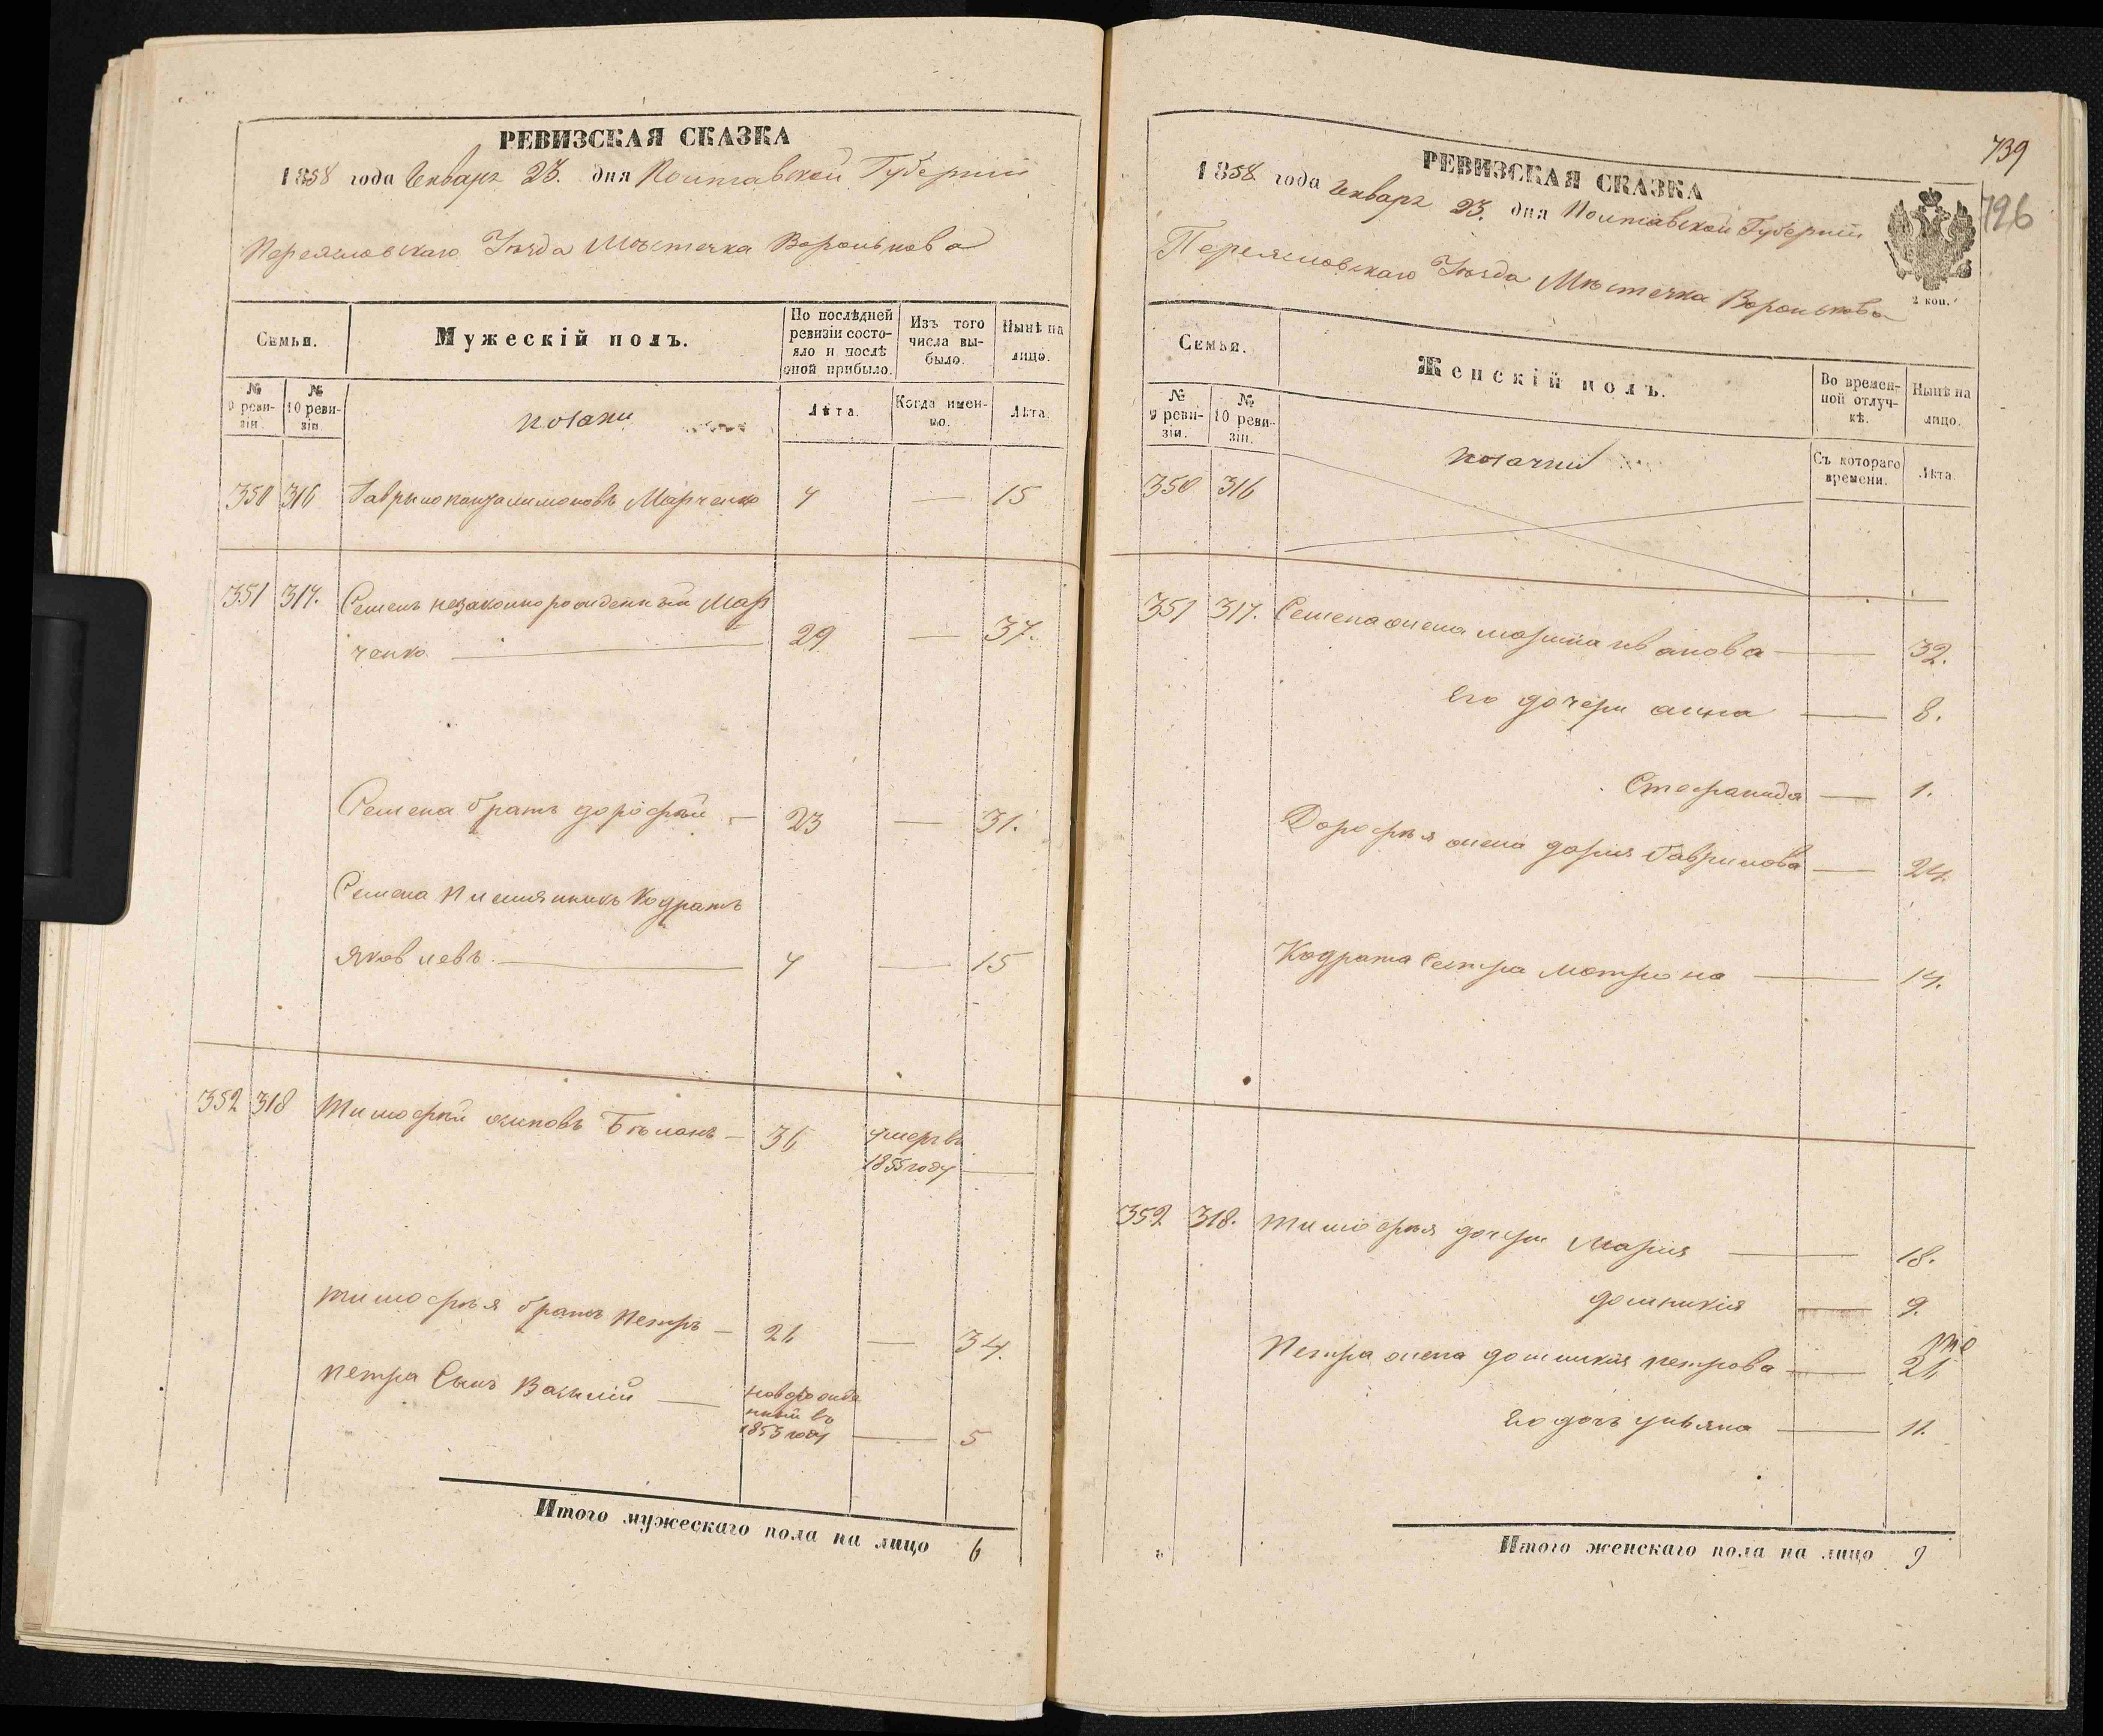 РЕВИЗСКАЯ СКАЗКА
1858 года Генваря 23. дня Полтавской Губерніи
Переясловскаго Уѣзда Мѣстечка Воронькова
Семьи.
Мужескій полъ.
По послѣдней ревизіи состояло и послѣ оной прибыло.
Изъ того числа выбыло.
Нынѣ на лицо.
№ 9 ревизіи.
№ 10 ревизіи
козаки
Лѣта.
Когда именно.
Лѣта.
350 316 Гаврыло панталимоновъ Марченко 7 — 15
351 317. Семенъ незаконнорожденный Мар
ченко — 29 — 37.
Семена братъ дорофей — 23 — 31.
Семена племянникъ Кодратъ
яковлевъ. — 7 — 15
352 318 тимофей осиповъ Бѣланъ — 36 умеръ въ
1855 году —
тимофѣя братъ петръ — 26 — 34.
петра Сынъ Василій — новорожде
нный въ
1853 году — 5
Итого мужескаго пола на лицо 6
739
726
РЕВИЗСКАЯ СКАЗКА
1858. года Генваря 23. дня Полтавской Губерніи
Переясловскаго Уѣзда Мѣстечка Воронькова
2 коп.
Семьи.
Женскій полъ.
Во временной отлучкѣ.
Нынѣ на лицо.
№ 9 ревизіи.
№ 10 ревизіи.
козачки
Съ котораго времени.
Лѣта.
350 316
351 317. Семена жена марина иванова — 32.
Его дочери анна — 8.
Стефанида — 1.
Дорофѣя жена дария Гаврилова — 24.
Кодрата Сестра мотрона — 17.
352 318. тимофѣя дочери Мария — 18.
домникія — 9.
Петра жена домникия петрова — 26
Его дочь ульяна — 11.
Итого женскаго пола на лицо 9